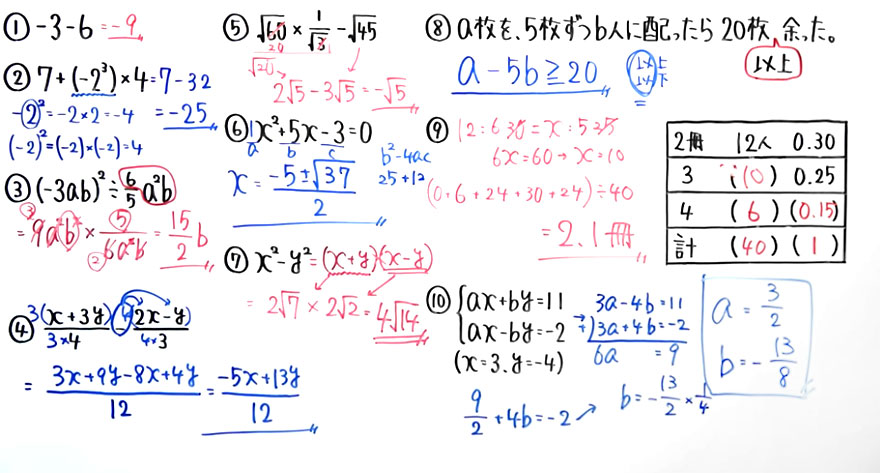 ① -3-6=-9
② 7+(-2³)×4=7-32
-2²=-2×2=-4 =-25
(-2)²=(-2)×(-2)=4
③ (-3ab)²÷6/5a²b
=9a²b²×5/6a²b=15/2b
③ ⑤ ②
④ 3(x+3y)/3×4-4(2x-y)/4×3
=3x+9y-8x+4y/12=-5x+13y/12
⑤ √60×1/√3-√45
20 1
√20
2√5-3√5=-√5
⑥ 1x²+5x-3=0
a b c
b²-4ac
25+12
x=-5±√37/2
⑦ x²-y²=(x+y)(x-y)
=2√7×2√2=4√14
⑧ a枚を、5枚ずつb人に配ったら20枚余った。
以上
a-5b≧20
以上
以下
⑨ 12:630=x:535
6x=60→x=10
(0+6+24+30+24)÷40
=2.1冊
2冊 12人 0.30
3 (10) 0.25
4 (6) (0.15)
計 (40) (1)
⑩ {ax+by=11
ax-by=-2
(x=3、y=-4)
3a-4b=11
+)3a+4b=-2
6a =9
9/2+4b=-2
b=-13/2×1/4
a=3/2
b=-13/8